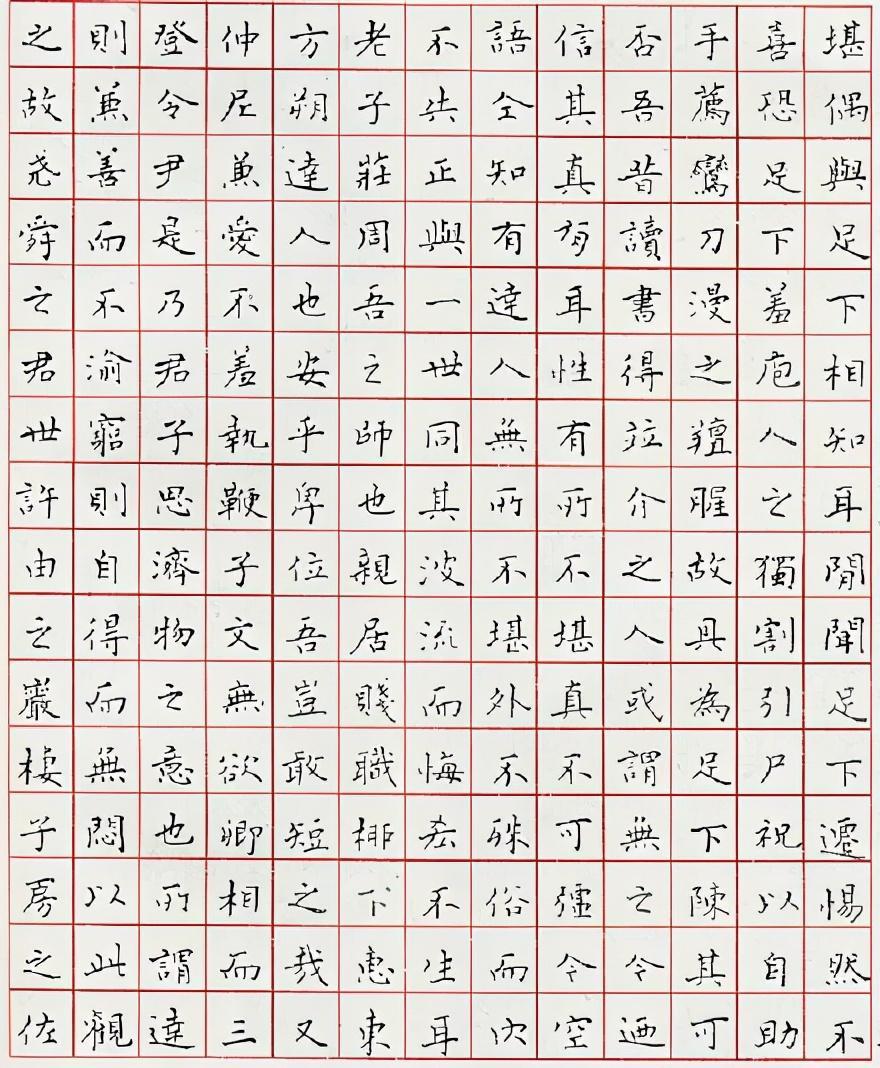 堪偶與足下相知耳閒聞足下遷惕然不
喜恐足下羞庖人之獨割引尸祝以自助
手薦鸞刀漫之羶腥故具為足下陳其可
否吾昔讀書得竝介之人或謂無之今迺
信其真有耳性有所不堪真不可彊今空
語仝知有達人無所不堪外不殊俗而內
不失正與一世同其波流而悔吝不生耳
老子莊周吾之師也親居賤職桺下惠東
方朔達人也安乎卑位吾豈敢短之哉又
仲尼兼愛不羞執鞭子文無欲卿相而三
登令尹是乃君子思濟物之意也所謂達
則兼善而不渝窮則自得而無悶以此觀
之故堯舜之君世許由之巖棲子房之佐